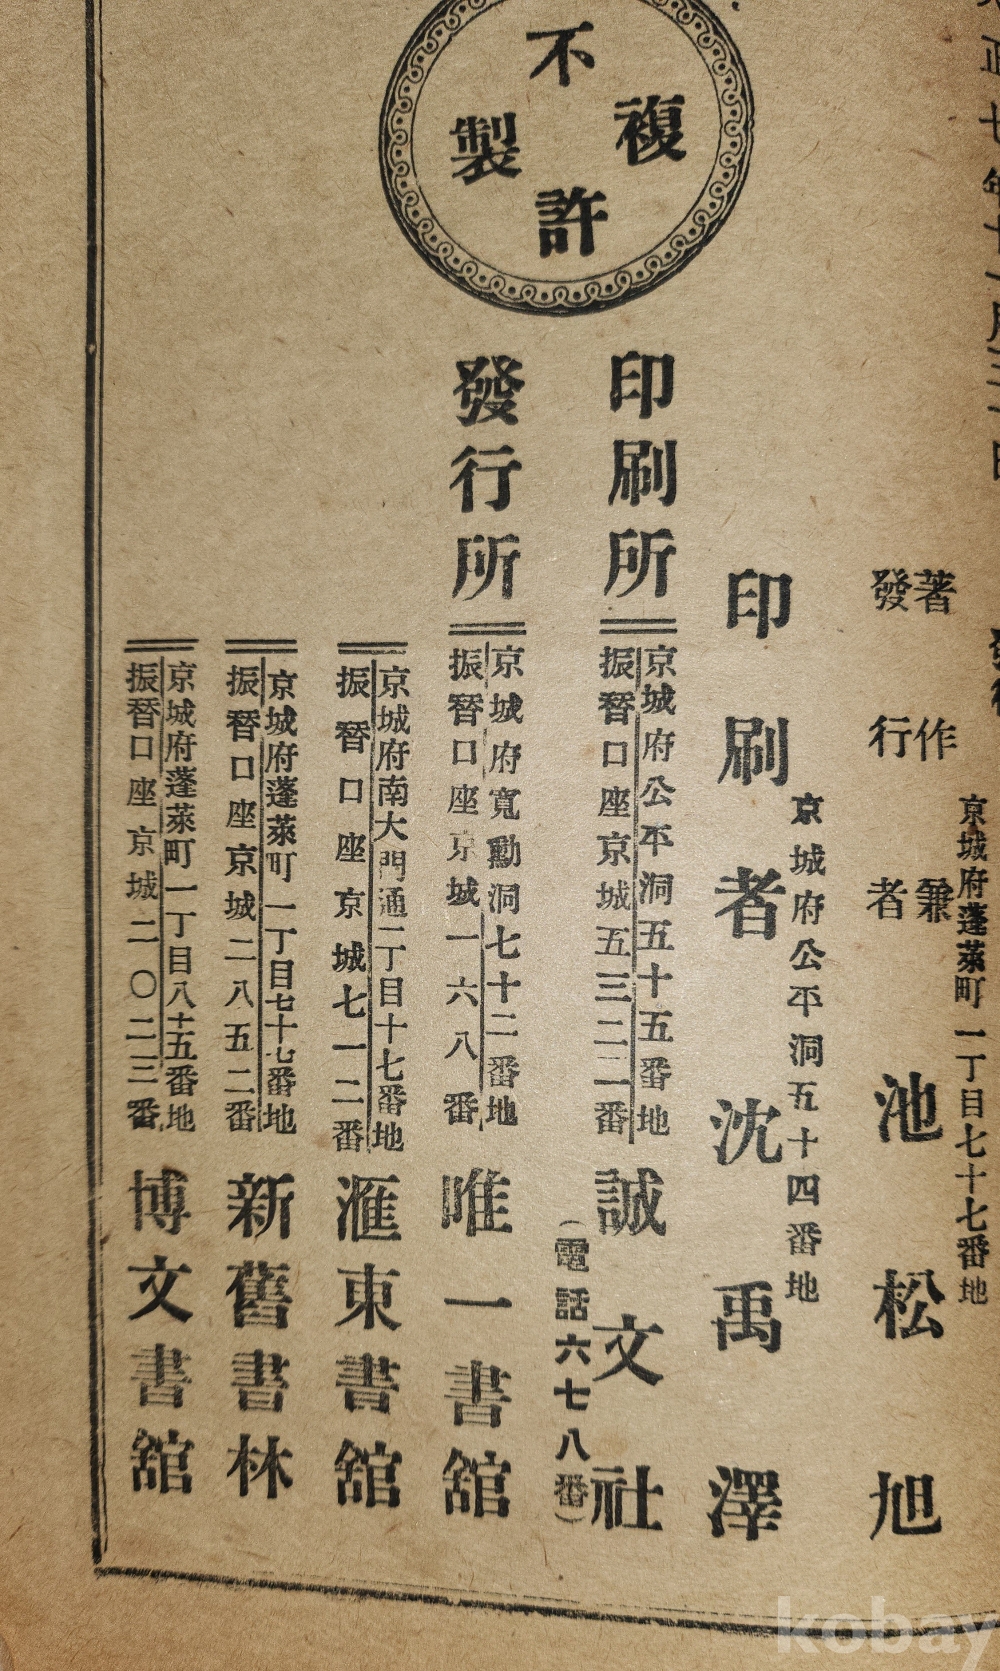 正七年十一月三十日
發行
京城府蓬萊町一丁目七十七番地
著作兼
發行者
池松旭
京城府公平洞五十四番地
印刷者
沈禹澤
複製
不許
印刷所
京城府公平洞五十五番地
振替口座京城五三二二番
誠文社
(電話六七八番)
發行所
京城府寬勳洞七十二番地
振替口座京城一六八番
唯一書舘
京城府南大門通二丁目十七番地
振替口座京城七一二番
滙東書舘
京城府蓬萊町一丁目七十七番地
振替口座京城二八五二番
新舊書林
京城府蓬萊町一丁目八十五番地
振替口座京城二〇二三番
博文書舘
kobay